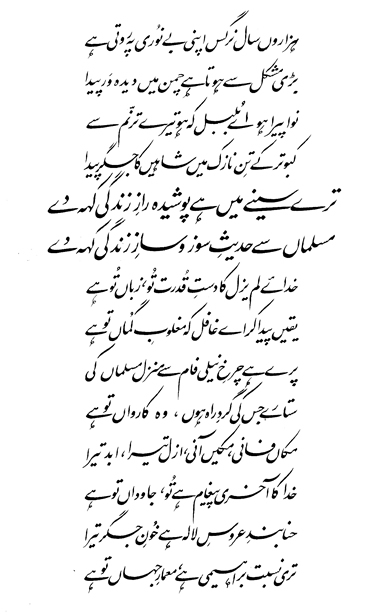 ہزاروں سال نرگس اپنی بے نوری پہ روتی ہے
بڑی مشکل سے ہوتا ہے چمن میں دیدہ ور پیدا
نوا پیرا ہو اے بلبل کہ ہو تیرے ترنّم سے
کبوتر کے تنِ نازک میں شاہیں کا جگر پیدا
ترے سینے میں ہے پوشیدہ رازِ زندگی کہہ دے
مسلماں سے حدیثِ سوز و سازِ زندگی کہہ دے
خدائے لم یزل کا دستِ قُدرت تُو، زباں تُو ہے
یقیں پیدا کر اے غافل کہ مغلوبِ گماں تو ہے
پرے ہے چرخِ نیلی فام سے منزل مسلماں کی
ستارے جس کی گردِ راہ ہوں، وہ کارواں تو ہے
مکاں فانی، مکیں آنی، ازل تیرا، ابد تیرا
خدا کا آخری پیغام ہے تُو، جاوداں تو ہے
حنا بندِ عروسِ لالہ ہے خونِ جگر تیرا
تری نسبت براہیمی ہے معمارِ جہاں تو ہے